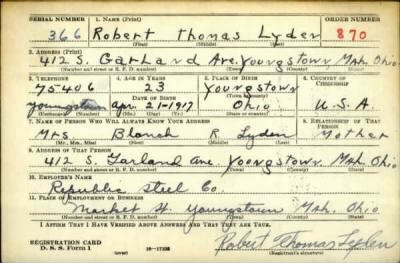 SERIAL NUMBER 1. NAME (Print) ORDER NUMBER
366 Robert Thomas Lyden 870
(First) (Middle) (Last)
2. ADDRESS (Print)
412 S. Garland Ave. Youngstown, Mah. Ohio
(Number and street or R. F. D. number) (Town) (County) (State)
3. TELEPHONE 4. AGE IN YEARS 5. PLACE OF BIRTH 6. COUNTRY OF CITIZENSHIP
75406 23 Youngstown
DATE OF BIRTH
Youngstown Apr. 21-1917 Ohio U.S.A.
(Exchange) (Number) (Mo.) (Day) (Yr.) (State or country)
7. NAME OF PERSON WHO WILL ALWAYS KNOW YOUR ADDRESS 8. RELATIONSHIP OF THAT PERSON
Mrs Blanch R Lyden Mother
(Mr., Mrs., Miss) (First) (Middle) (Last)
9. ADDRESS OF THAT PERSON
412 S. Garland Ave. Youngstown, Mah. Ohio
(Number and street or R. F. D. number) (Town) (County) (State)
10. EMPLOYER'S NAME
Republic Steel Co.
11. PLACE OF EMPLOYMENT OR BUSINESS
Market St. Youngstown Mah. Ohio
(Number and street or R. F. D. number) (Town) (County) (State)
I AFFIRM THAT I HAVE VERIFIED ABOVE ANSWERS AND THAT THEY ARE TRUE.
Robert Thomas Lyden
REGISTRATION CARD
D. S. S. Form 1 (over) (Registrant's signature)